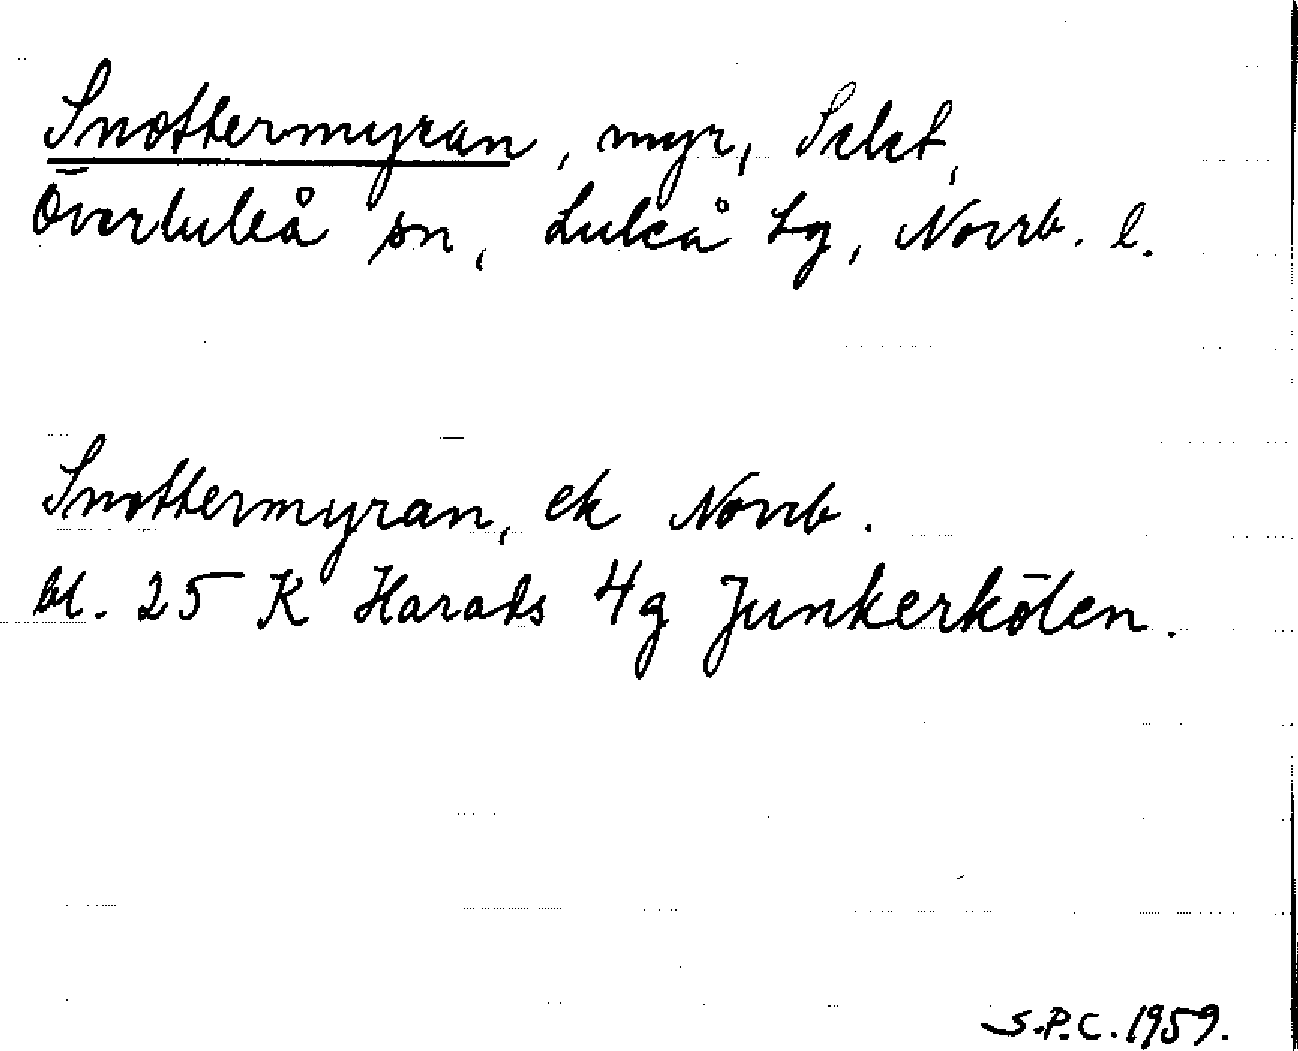 Snottermyran, myr, Selet,
Överluleå sn, Luleå tg, Norrb. l.
Snottermyran, ek Norrb.
bl. 25 K Harads 4g Junkerkölen.
S.P.C. 1959.